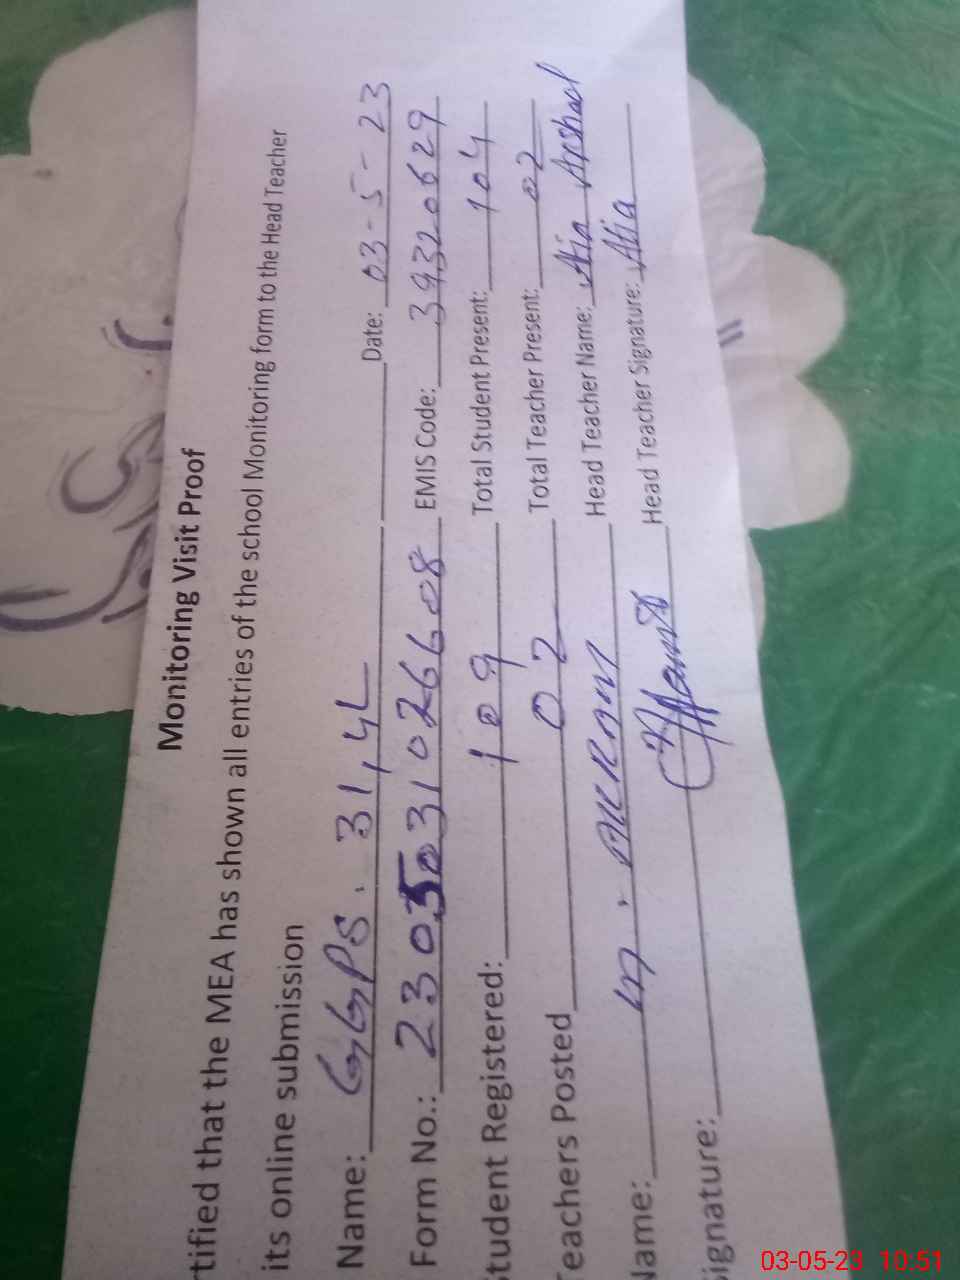 Monitoring Visit Proof
tified that the MEA has shown all entries of the school Monitoring form to the Head Teacher
its online submission
Name: GGPS. 31,4L Date: 03-5-23
Form No.: 2305031026608 EMIS Code: 39320629
tudent Registered: 109 Total Student Present: 104
Teachers Posted 02 Total Teacher Present: 02
Name: M. AKRAM Head Teacher Name: Atia Arshad
ignature: Head Teacher Signature: Atia
03-05-23 10:51